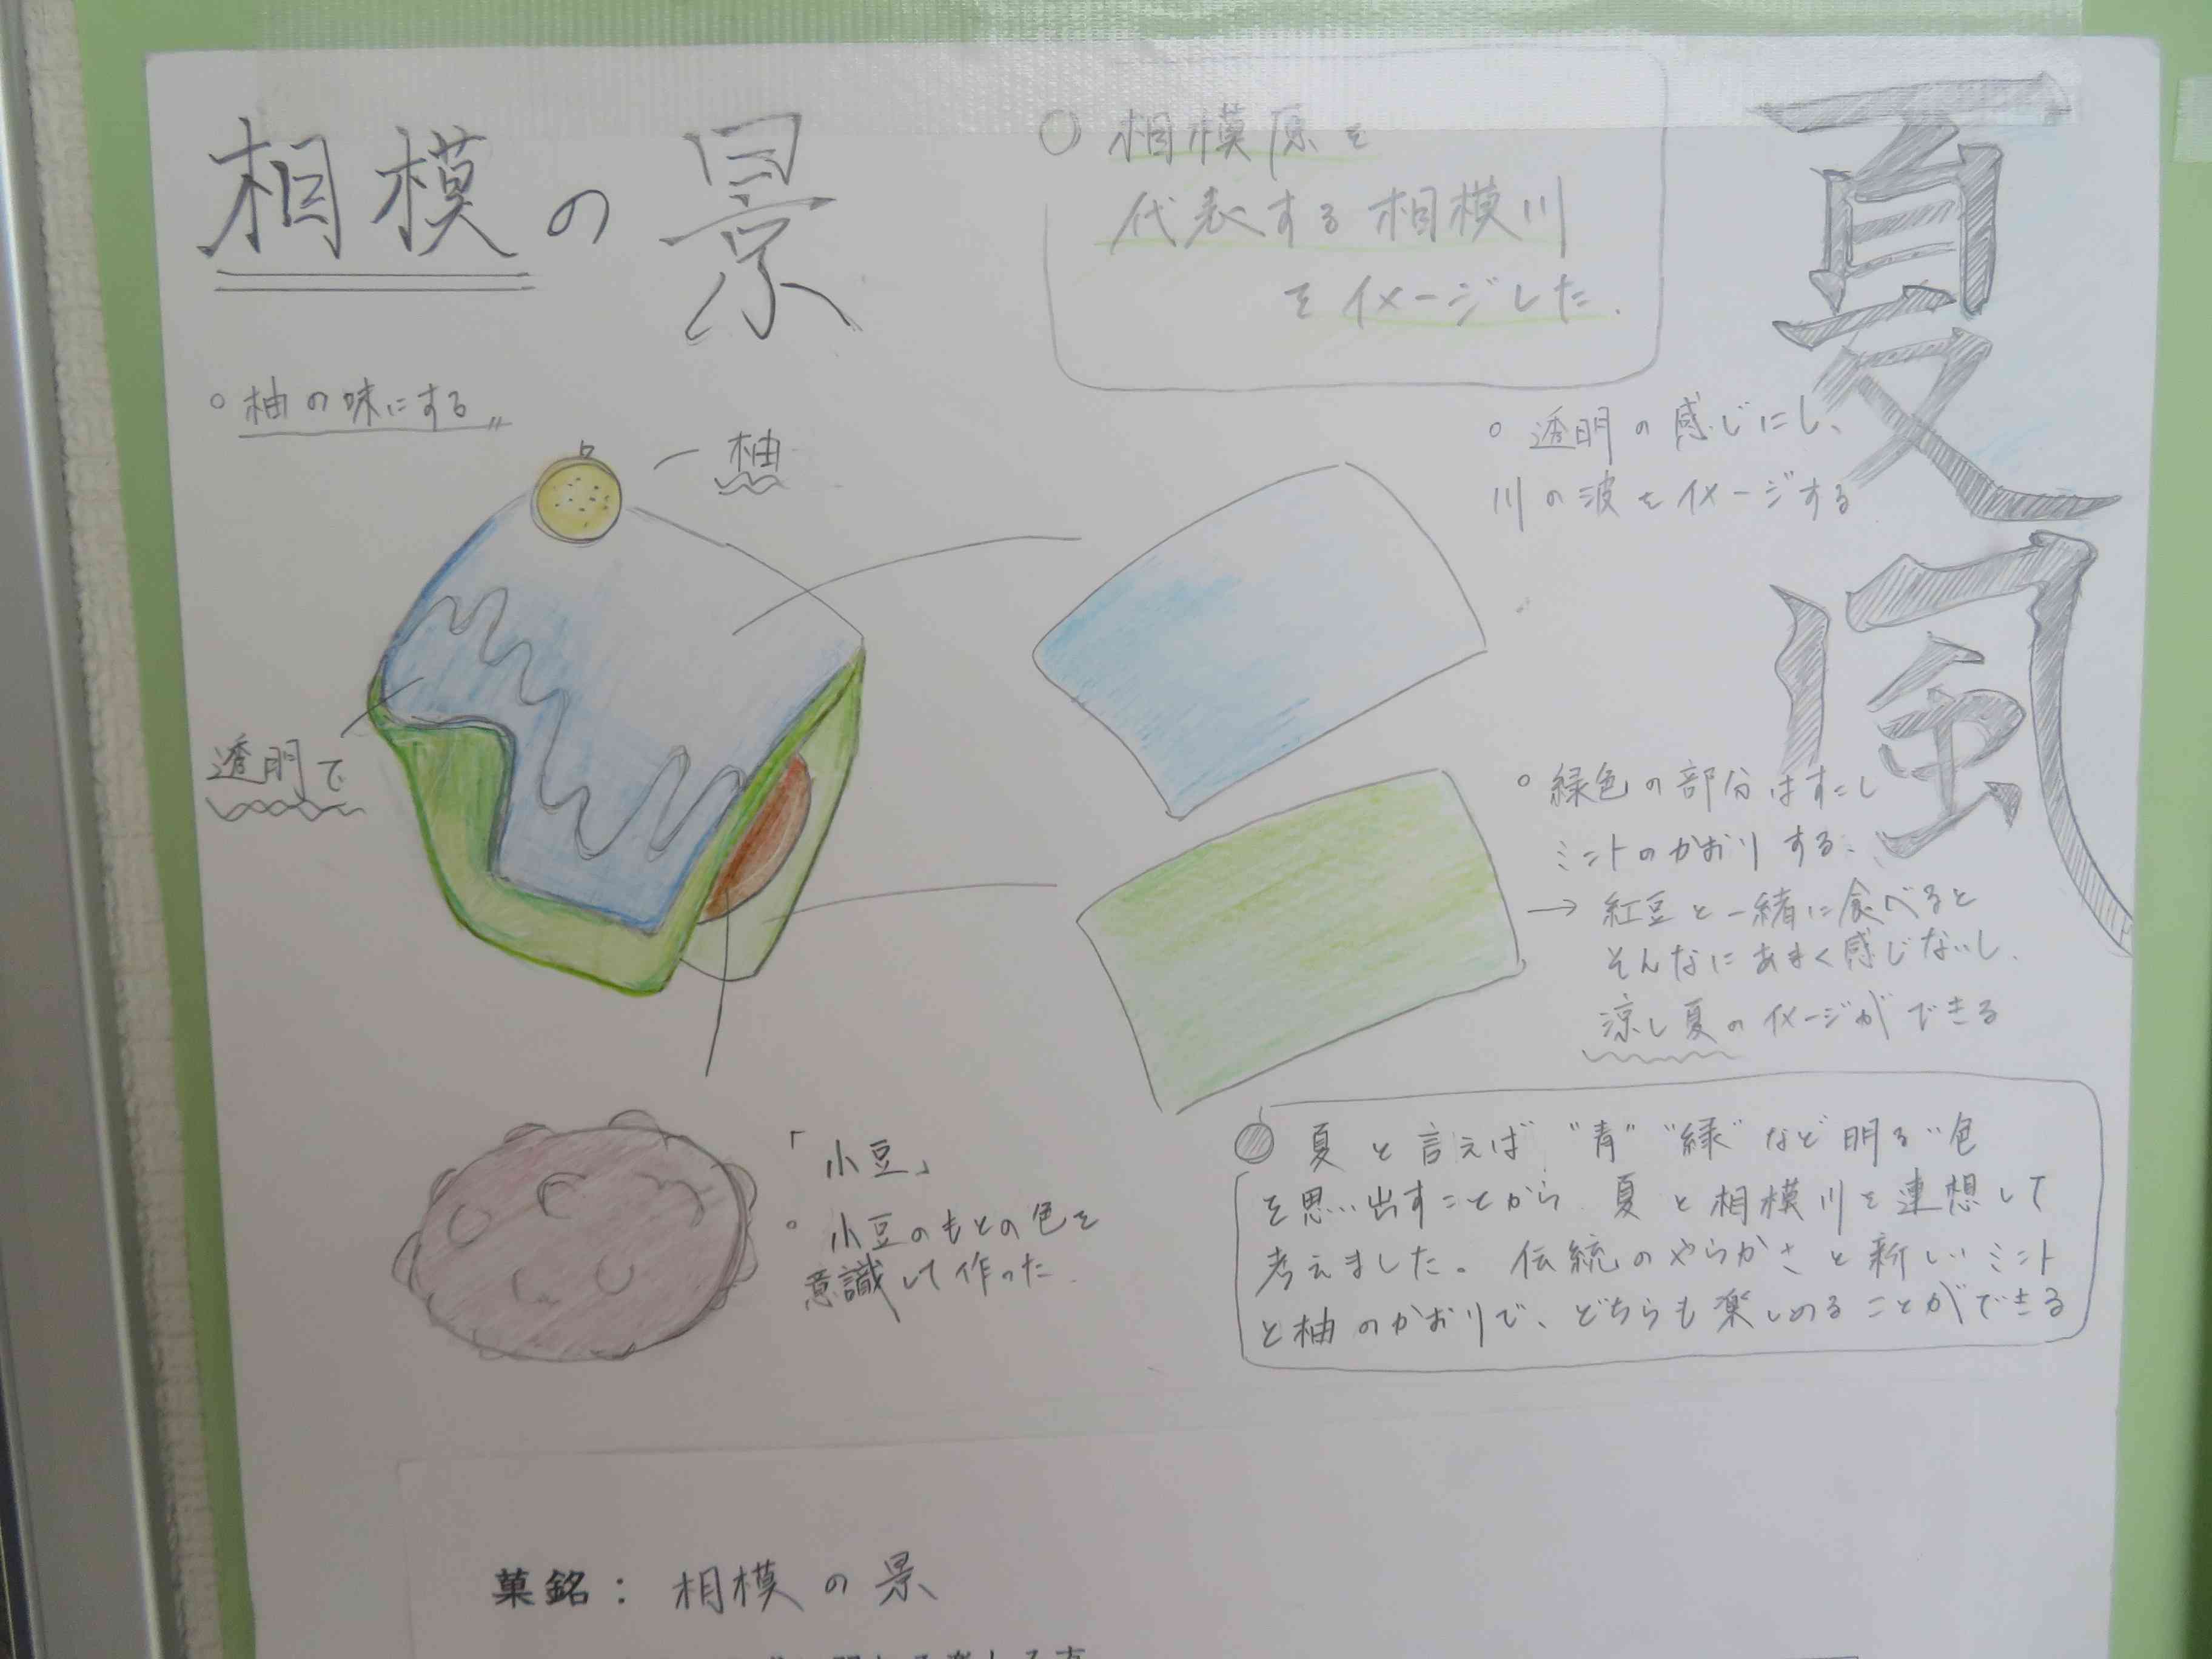 相模の景
○ 相模原を
代表する相模川
をイメージした.
夏風
○ 柚の味にする〃
柚
透明で
○ 透明の感じにし、
川の波をイメージする
○ 緑色の部分はすこし
ミントのかおりする.
→ 紅豆と一緒に食べると
そんなにあまく感じないし.
涼し夏のイメージができる
「小豆」
○ 小豆のもとの色を
意識して作った.
夏と言えば "青" "緑" など明るい色
を思い出すことから. 夏と相模川を連想して
考えました。伝統のやらかさと新しいミント
と柚のかおりで、どちらも楽しめることができる
菓銘：相模の景